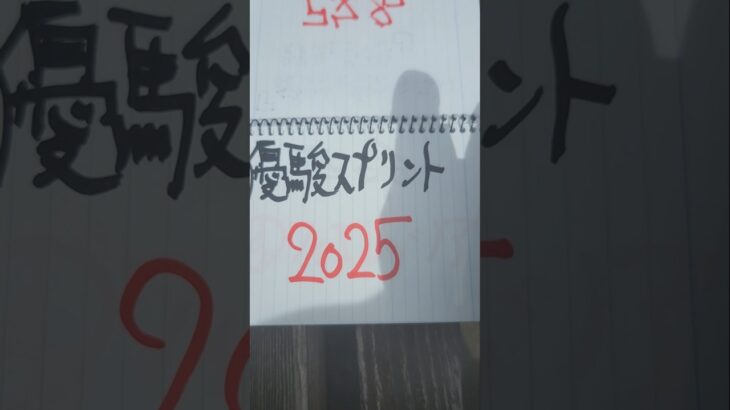 優駿スプリント
2025